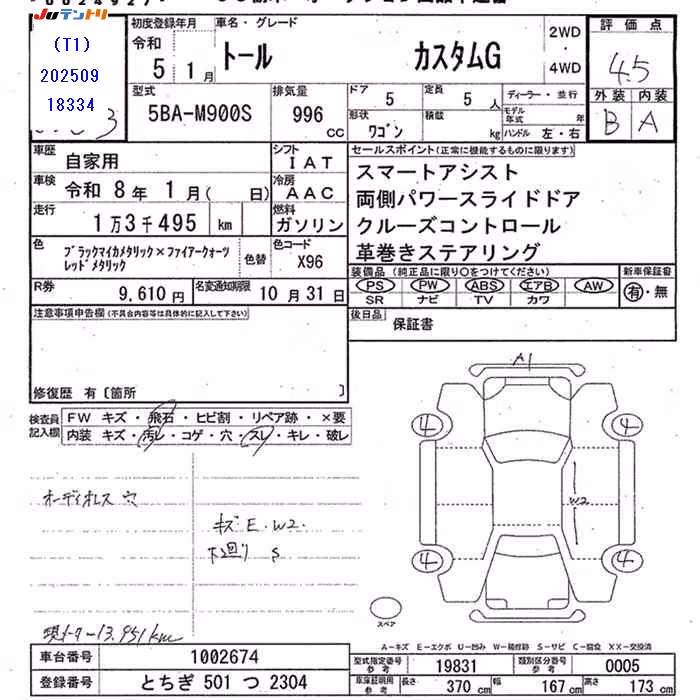 Juテントリ
(T1)
202509
18334
初度登録年月
令和
5 1 月
車名・グレード
トール カスタムG
2WD
・
4WD
評価点
4.5
外装 内装
B A
型式
5BA-M900S
排気量
996
CC
ドア
5
定員
5 人
ディーラー・並行
モデル年式 年
形状
ワゴン
積載
kg
ハンドル 左・右
車歴
自家用
シフト
IAT
車検
令和 8年 1月( 日)
冷房
AAC
走行
1万3千495 km
燃料
ガソリン
色
ブラックマイカメタリック×ファイアークォーツ
レッドメタリック
色替
色コード
X96
セールスポイント(正常に機能するものに限ります)
スマートアシスト
両側パワースライドドア
クルーズコントロール
革巻きステアリング
装備品(純正品に限り○をつけてください)
PS PW ABS エアB AW
SR ナビ TV カワ
新車保証書
有・無
R券
9,610円
名変通知期限
10月31日
後日品
保証書
注意事項申告欄(不具合内容等は具体的に記入して下さい)
修復歴 有〔箇所 〕
検査員
記入欄
FW キズ・飛石・ヒビ割・リペア跡・×要
内装 キズ・汚レ・コゲ・穴・スレ・キレ・破レ
オーディオレス 穴
キズ E.W2.
下廻り S
現メーター13,951km
A1
4
4
W2
4
4
スペア
A-キズ E-エクボ U-凹み W-補修跡 S-サビ C-腐食 XX-交換済
車台番号
1002674
登録番号
とちぎ 501 つ 2304
型式指定番号
参考
19831
類別区分番号
参考
0005
車庫証明用
参考
長さ 370 cm 幅 167 cm 高さ 173 cm